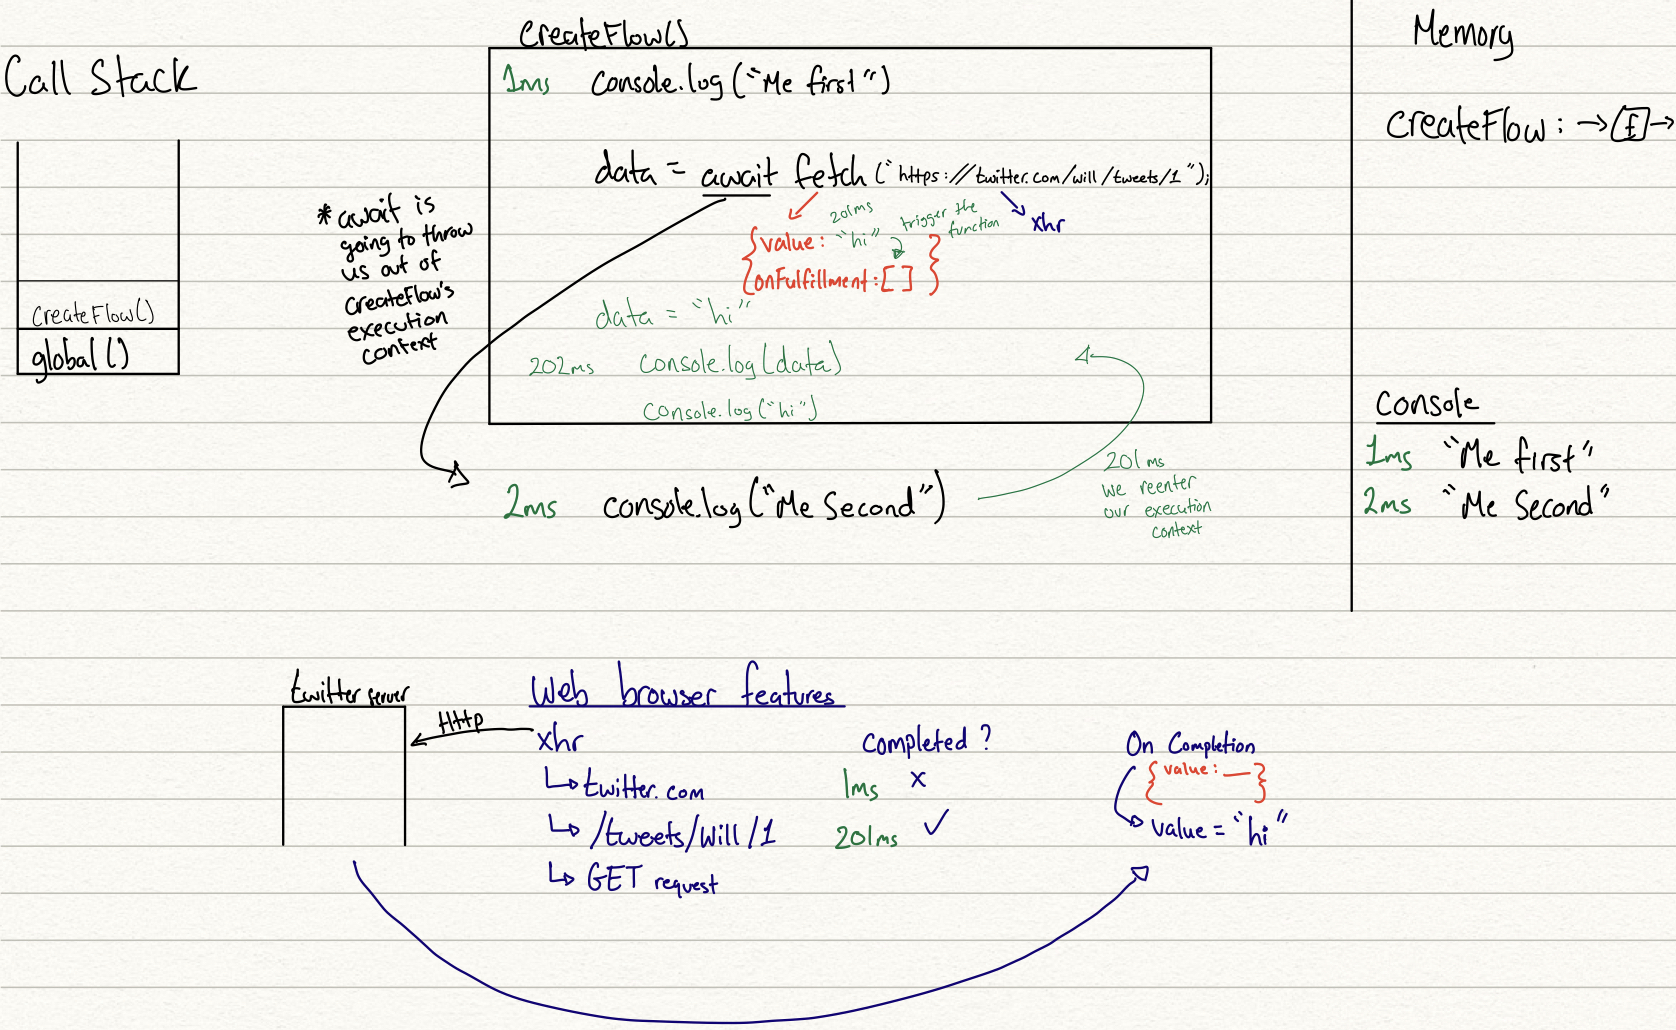 Call Stack
createFlow()
global()
* await is
going to throw
us out of
createFlow's
execution
context
createFlow()
1ms console.log("Me first")
data = await fetch("https://twitter.com/will/tweets/1");
201ms
trigger the
function
xhr
{value: "hi"
onFulfillment:[ ]}
data = "hi"
202ms console.log(data)
console.log("hi")
2ms console.log("Me Second")
201ms
we reenter
our execution
context
Memory
createFlow: →[f]→
Console
1ms "Me first"
2ms "Me Second"
twitter server
Http
Web browser features
xhr
↳ twitter.com
↳ /tweets/Will/1
↳ GET request
Completed ?
1ms x
201ms ✓
On Completion
{value: __}
value = "hi"